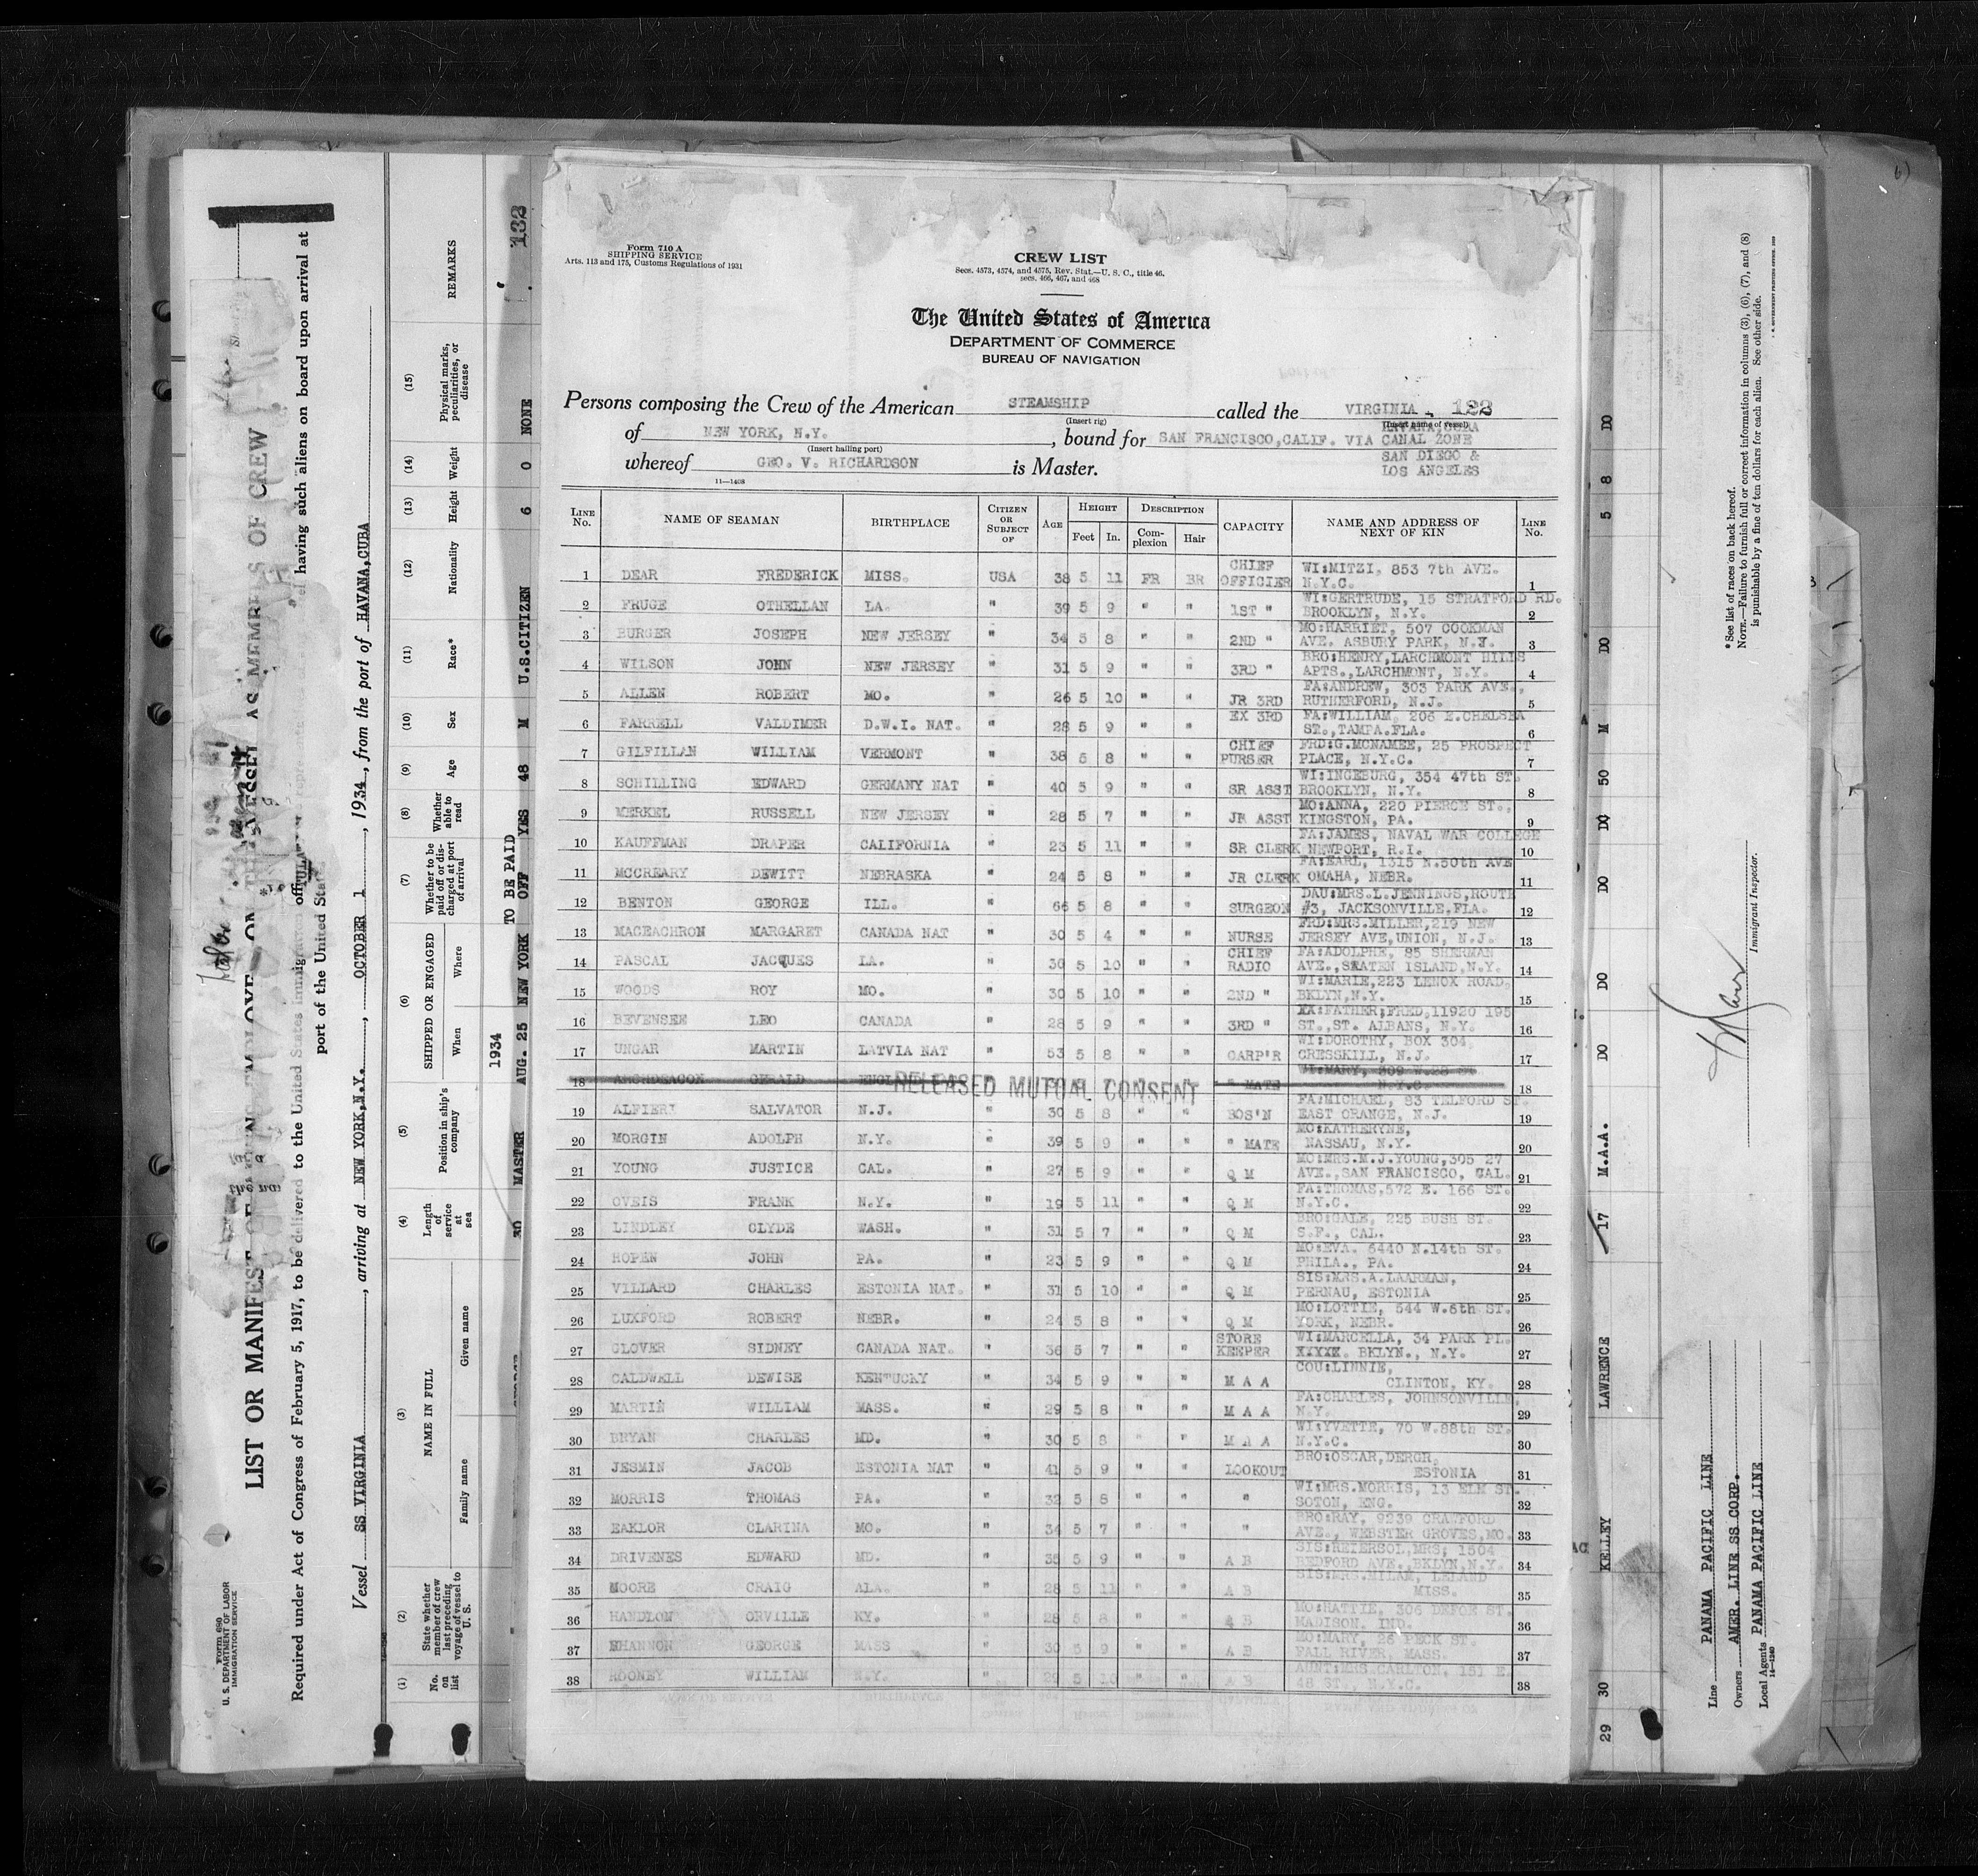 Form 710 A
SHIPPING SERVICE
Arts. 113 and 175, Customs Regulations of 1931
CREW LIST
Secs. 4573, 4574, and 4575, Rev. Stat.—U. S. C., title 46.
secs. 466, 467, and 468
The United States of America
DEPARTMENT OF COMMERCE
BUREAU OF NAVIGATION
Persons composing the Crew of the American STEAMSHIP called the VIRGINIA
(Insert rig) (Insert name of vessel)
of NEW YORK, N.Y., bound for SAN FRANCISCO, CALIF. VIA CANAL ZONE
(Insert hailing port) SAN DIEGO &
whereof GEO. V. RICHARDSON is Master. LOS ANGELES
11—1408
LINE No. NAME OF SEAMAN BIRTHPLACE CITIZEN OR SUBJECT OF AGE HEIGHT Feet In. DESCRIPTION Complexion Hair CAPACITY NAME AND ADDRESS OF NEXT OF KIN LINE No.
1 DEAR FREDERICK MISS. USA 38 5 11 FR BR CHIEF OFFICIER WI:MITZI, 853 7th AVE. N.Y.C. 1
2 FRUGE OTHELLAN LA. " 39 5 9 " " 1ST " WI:GERTRUDE, 15 STRATFORD RD. BROOKLYN, N.Y. 2
3 BURGER JOSEPH NEW JERSEY " 34 5 8 " " 2ND " MO:HARRIET, 507 COOKMAN AVE. ASBURY PARK, N.J. 3
4 WILSON JOHN NEW JERSEY " 31 5 9 " " 3RD " BRO:HENRY, LARCHMONT HILLS APTS., LARCHMONT, N.Y. 4
5 ALLEN ROBERT MO. " 26 5 10 " " JR 3RD FA:ANDREW, 303 PARK AVE., RUTHERFORD, N.J. 5
6 FARRELL VALDIMER D.W.I. NAT. " 28 5 9 " " EX 3RD FA:WILLIAM, 206 E.CHELSEA ST., TAMPA.FLA. 6
7 GILFILLAN WILLIAM VERMONT " 38 5 8 " " CHIEF PURSER FRD:G.MCNAMEE, 25 PROSPECT PLACE, N.Y.C. 7
8 SCHILLING EDWARD GERMANY NAT " 40 5 9 " " SR ASST WI:INGEBURG, 354 47th ST. BROOKLYN, N.Y. 8
9 MERKEL RUSSELL NEW JERSEY " 28 5 7 " " JR ASST MO:ANNA, 220 PIERCE ST., KINGSTON, PA. 9
10 KAUFFMAN DRAPER CALIFORNIA " 23 5 11 " " SR CLERK FA:JAMES, NAVAL WAR COLLEGE NEWPORT, R.I. 10
11 MCCREARY DEWITT NEBRASKA " 24 5 8 " " JR CLERK FA:EARL, 1315 N.50th AVE OMAHA, NEBR. 11
12 BENTON GEORGE ILL. " 66 5 8 " " SURGEON DAU:MRS.L.JENNINGS, ROUTE #3, JACKSONVILLE, FLA. 12
13 MACEACHRON MARGARET CANADA NAT " 30 5 4 " " NURSE FRD:MRS.MILLER, 219 NEW JERSEY AVE, UNION, N.J. 13
14 PASCAL JACQUES LA. " 30 5 10 " " CHIEF RADIO FA:ADOLPHE, 85 SHERMAN AVE., STATEN ISLAND, N.Y. 14
15 WOODS ROY MO. " 30 5 10 " " 2ND " WI:MARIE, 223 LENOX ROAD, BKLYN, N.Y. 15
16 BEVENSEE LEO CANADA " 28 5 9 " " 3RD " FATHER; FRED, 11920 195 ST., ST. ALBANS, N.Y. 16
17 UNGAR MARTIN LATVIA NAT " 53 5 8 " " CARP'R WI:DOROTHY, BOX 304, CRESSKILL, N.J. 17
18 ARCHDEACON GERALD RELEASED MUTUAL CONSENT " MATE WI:MARY, 309 W.28 ST N.Y.C. 18
19 ALFIERI SALVATOR N.J. " 30 5 8 " " BOS'N FA:MICHAEL, 83 TELFORD ST. EAST ORANGE, N.J. 19
20 MORGIN ADOLPH N.Y. " 39 5 9 " " " MATE MO:KATHERYNE, NASSAU, N.Y. 20
21 YOUNG JUSTICE CAL. " 27 5 9 " " Q M MO:MRS.M.J.YOUNG, 305 27 AVE., SAN FRANCISCO, CAL. 21
22 OVEIS FRANK N.Y. " 19 5 11 " " Q M FA:THOMAS, 572 E. 166 ST. N.Y.C. 22
23 LINDLEY CLYDE WASH. " 31 5 7 " " Q M BRO:GALE, 225 BUSH ST. S.F., CAL. 23
24 HOPEN JOHN PA. " 23 5 9 " " Q M MO:EVA. 6440 N.14th ST. PHILA., PA. 24
25 VILLARD CHARLES ESTONIA NAT. " 31 5 10 " " Q M SIS:MRS.A.LAARMAN, PERNAU, ESTONIA 25
26 LUXFORD ROBERT NEBR. " 24 5 8 " " Q M MO:LOTTIE, 544 W.8th ST. YORK, NEBR. 26
27 CLOVER SIDNEY CANADA NAT. " 36 5 7 " " STORE KEEPER WI:MARCELLA, 34 PARK PL. XXXXX. BKLYN., N.Y. 27
28 CALDWELL DEWISE KENTUCKY " 34 5 9 " " M A A COU:LINNIE, CLINTON, KY. 28
29 MARTIN WILLIAM MASS. " 29 5 8 " " M A A FA:CHARLES, JOHNSONVILLE, N.Y. 29
30 BRYAN CHARLES MD. " 30 5 8 " " M A A WI:YVETTE, 70 W.88th ST. N.Y.C. 30
31 JESMIN JACOB ESTONIA NAT " 41 5 9 " " LOOKOUT BRO:OSCAR, ESTONIA 31
32 MORRIS THOMAS PA. " 32 5 8 " " " WI:MRS.MORRIS, 13 ELM ST. SOTON, ENG. 32
33 EAKLOR CLARINA MO. " 34 5 7 " " " BRO:RAY, 9239 CRAWFORD AVE., WEBSTER GROVES, MO. 33
34 DRIVENES EDWARD MD. " 35 5 9 " " A B SIS:REIERSOL, MRS; 1504 BEDFORD AVE., BKLYN, N.Y. 34
35 MOORE CRAIG ALA. " 28 5 11 " " A B SIS:MRS.MILAM, LELAND MISS. 35
36 HANDLON ORVILLE KY. " 28 5 8 " " A B MO:HATTIE, 306 ST. MADISON, IND. 36
37 GEORGE MASS " 30 5 9 " " A B MO:MARY, 26 PECK ST. FALL RIVER, MASS. 37
38 ROONEY WILLIAM N.Y. " 5 10 " " A B AUNT:MRS.CARLTON, 151 E. 48 ST., N.Y.C. 38
Form 680
U. S. DEPARTMENT OF LABOR
IMMIGRATION SERVICE
LIST OR MANIFEST OF AS MEMBERS OF CREW
Required under Act of Congress of February 5, 1917, to be delivered to the United States immigration having such aliens on board upon arrival at
port of the United States
Vessel SS VIRGINIA, arriving at NEW YORK, N.Y., OCTOBER 1, 1934, from the port of HAVANA, CUBA
(1) No. on list
(2) State whether member of crew last preceding voyage of vessel to U. S.
(3) NAME IN FULL Family name Given name
(4) Length of service at sea
(5) Position in ship's company
(6) SHIPPED OR ENGAGED When Where
(7) Whether to be paid off or discharged at port of arrival
(8) Whether able to read
(9) Age
(10) Sex
(11) Race*
(12) Nationality
(13) Height
(14) Weight
(15) Physical marks, peculiarities, or disease
REMARKS
1934 TO BE PAID
30 MASTER AUG. 25 NEW YORK OFF YES 48 M U.S.CITIZEN 6 0 NONE 132
29 30 KELLEY LAWRENCE 17 M.A.A. DO DO DO DO 50 M DO 5 8 DO
Line PANAMA PACIFIC LINE
Owners AMER. LINE SS CORP.
Local Agents PANAMA PACIFIC LINE
14—1240
Immigrant Inspector.
*See list of races on back hereof.
NOTE.—Failure to furnish full or correct information in columns (3), (6), (7), and (8)
is punishable by a fine of ten dollars for each alien. See other side.